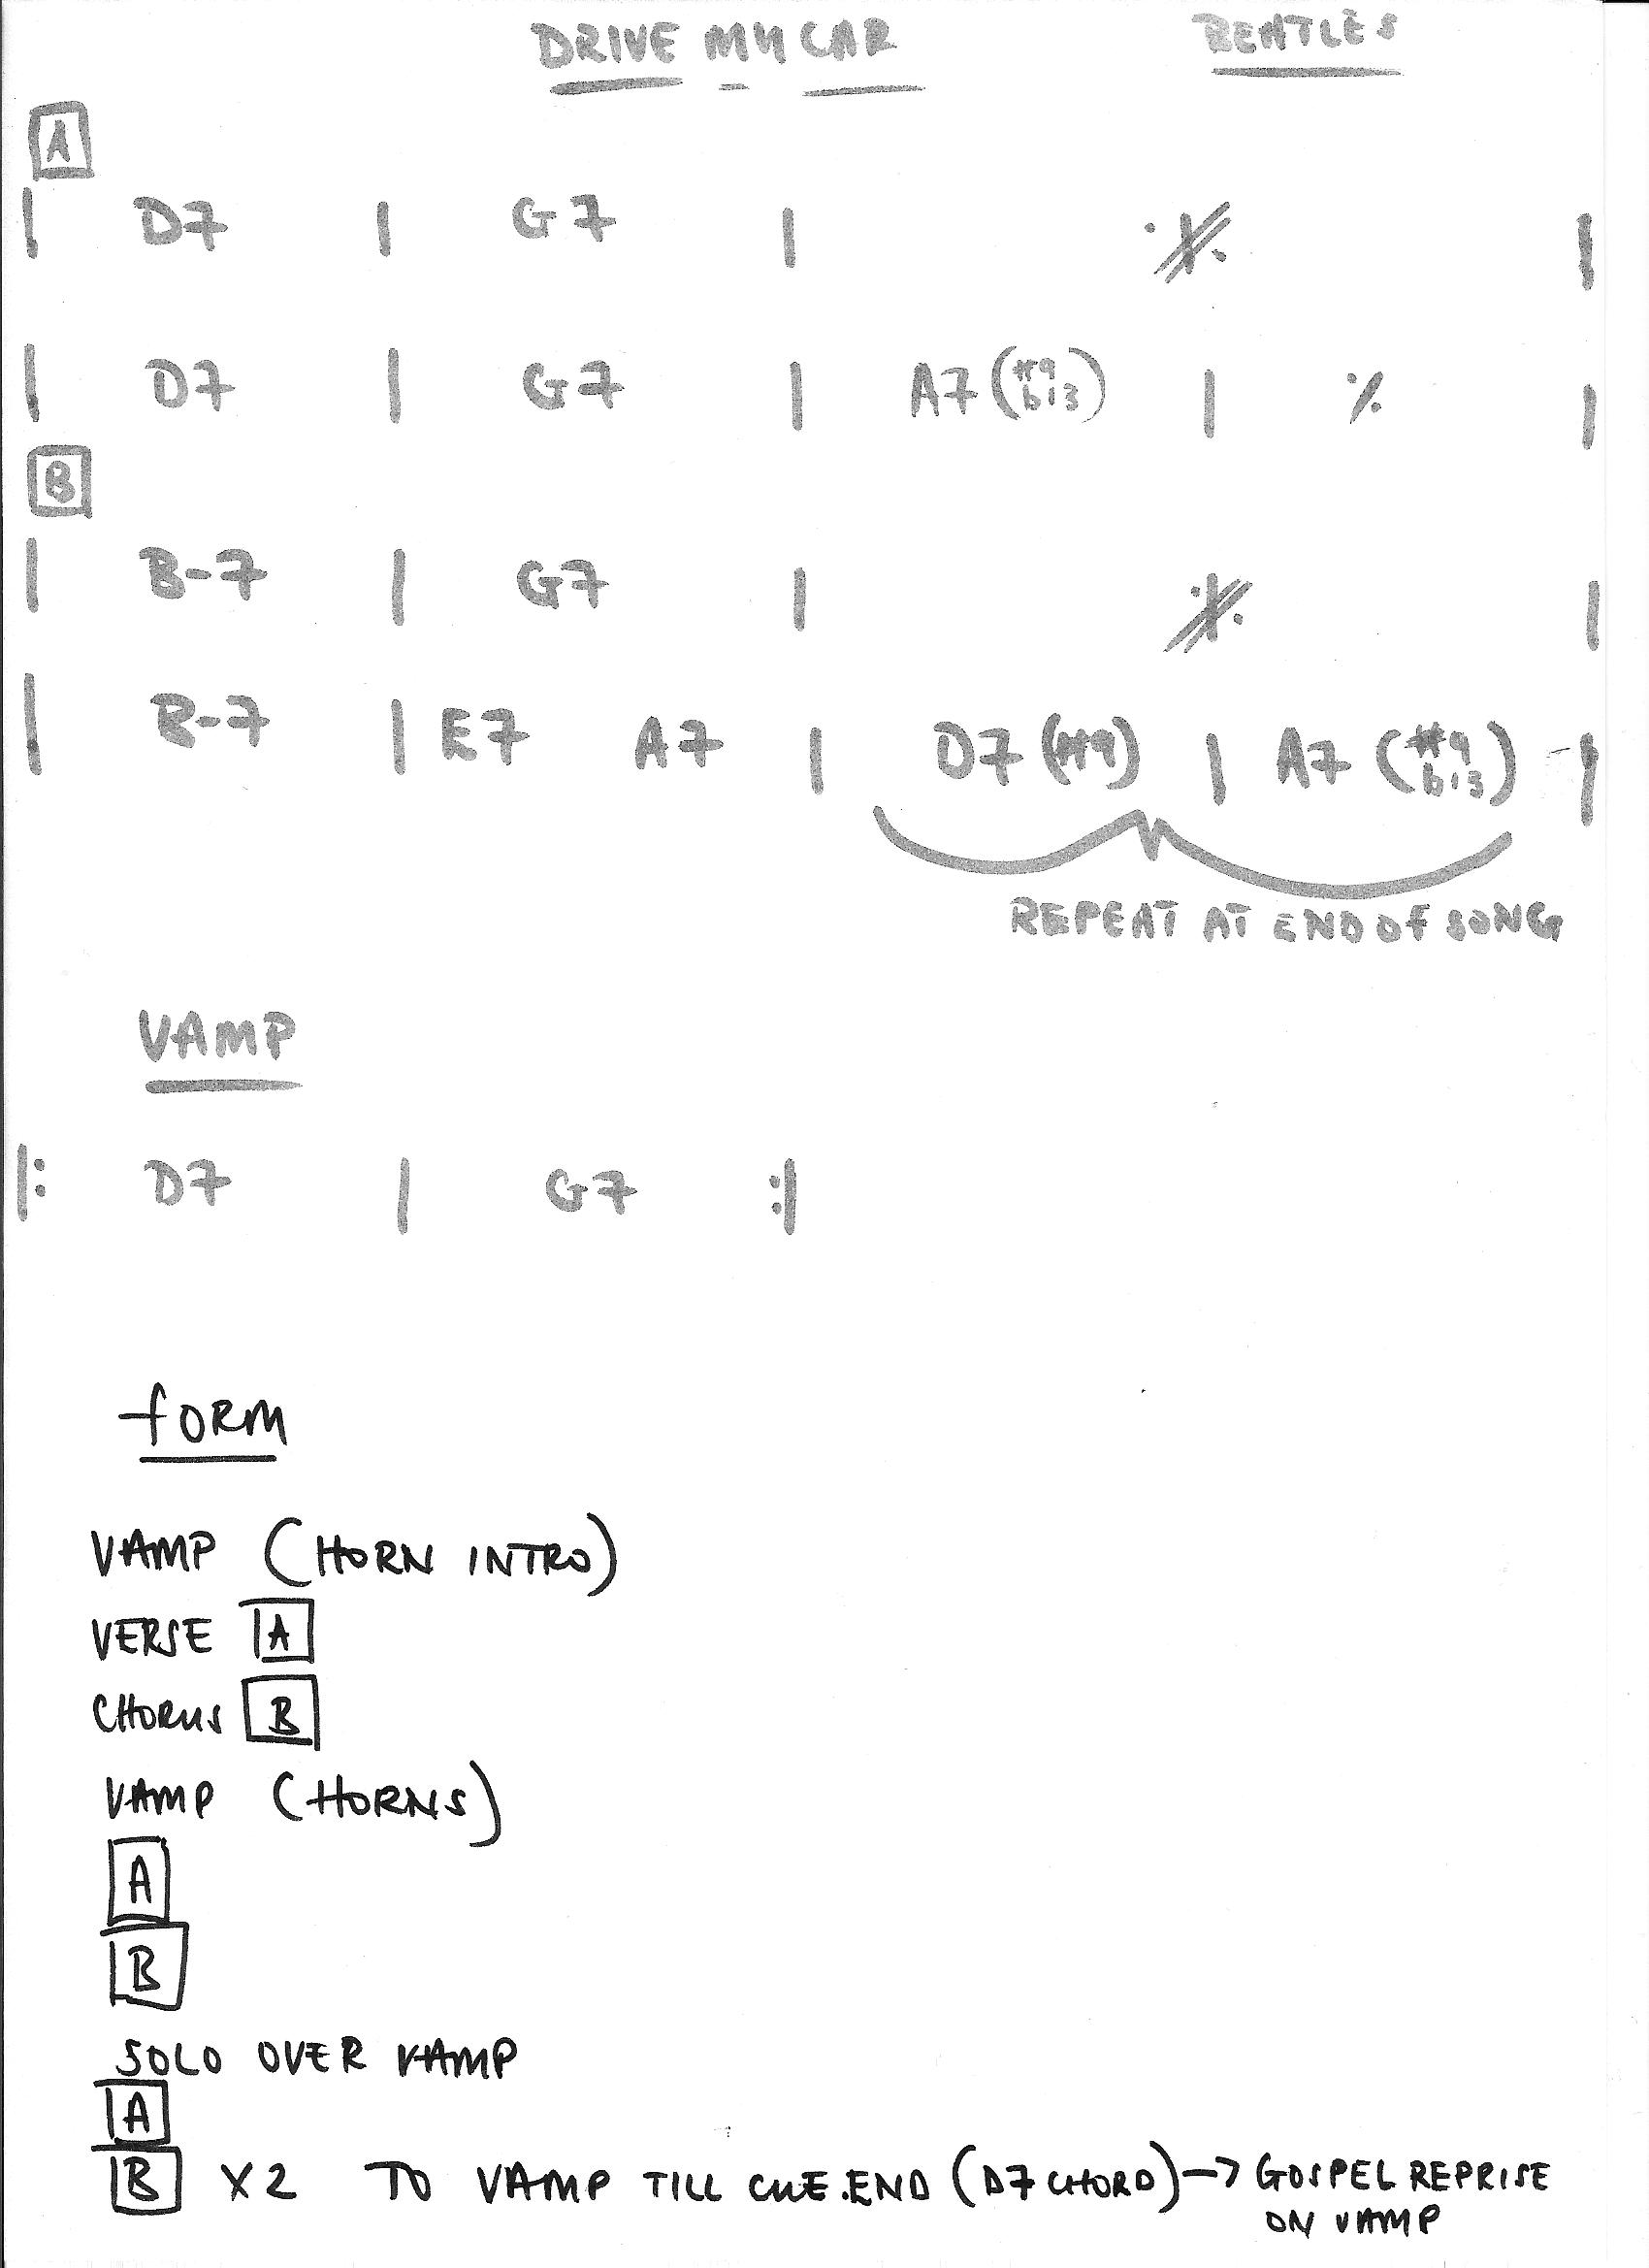 DRIVE MY CAR BEATLES
A
| D7 | G7 | ·//· |
| D7 | G7 | A7 (#9 b13) | ·/. |
B
| B-7 | G7 | ·//· |
| B-7 | E7 A7 | D7 (#9) | A7 (#9 b13) |
REPEAT AT END OF SONG
VAMP
|: D7 | G7 :|
FORM
VAMP (HORN INTRO)
VERSE A
CHORUS B
VAMP (HORNS)
A
B
SOLO OVER VAMP
A
B X2 TO VAMP TILL CUE.END (D7 CHORD) → GOSPEL REPRISE
ON VAMP